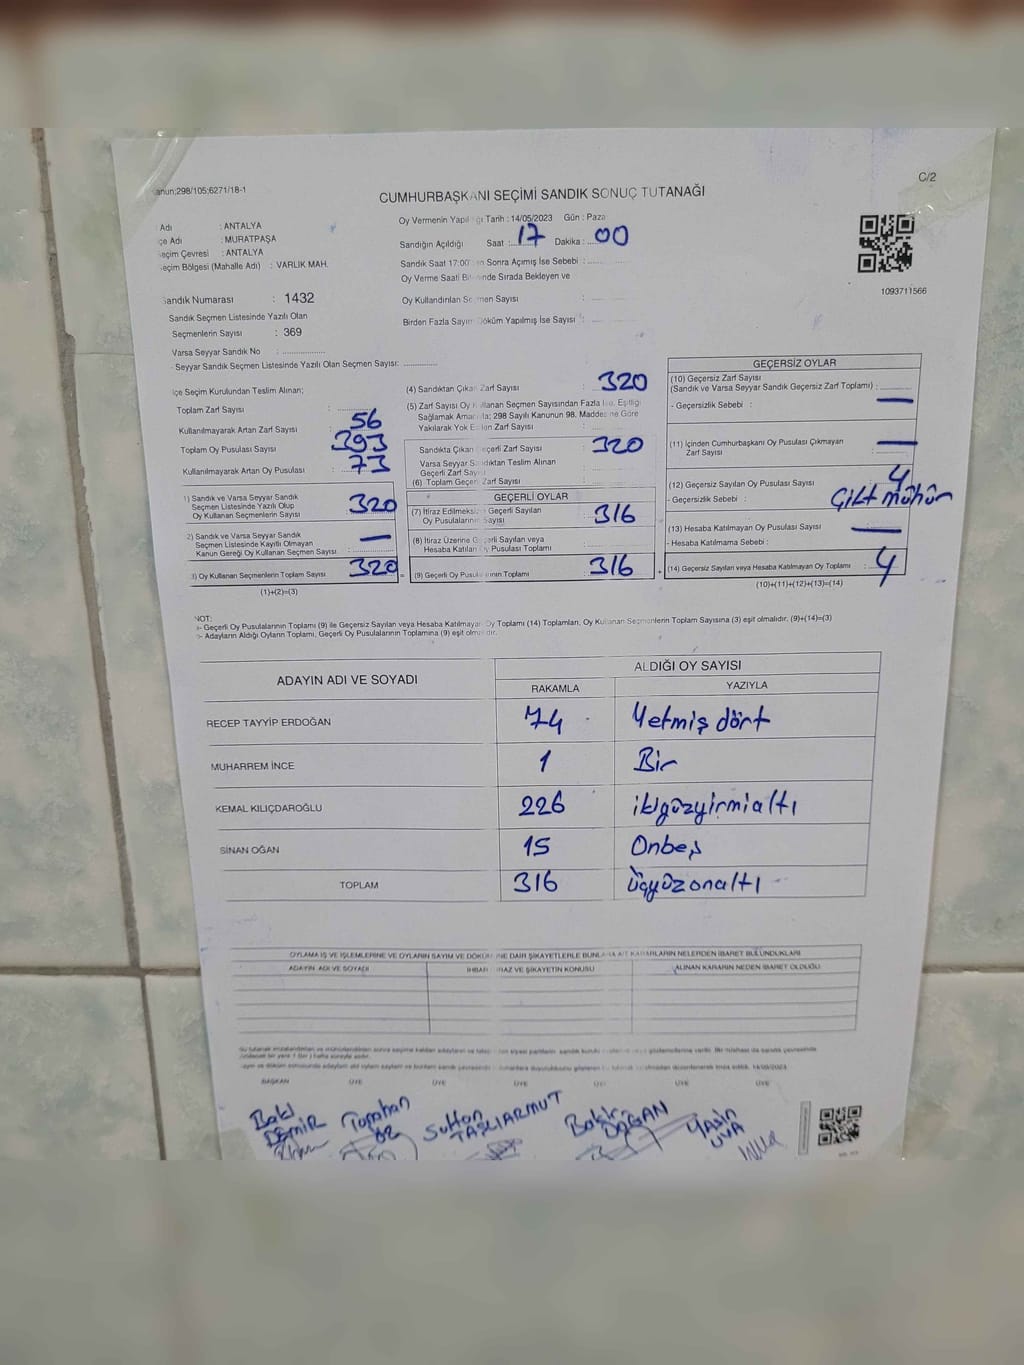 anun;298/105;6271/18-1
C/2
CUMHURBAŞKANI SEÇİMİ SANDIK SONUÇ TUTANAĞI
Adı : ANTALYA
çe Adı : MURATPAŞA
eçim Çevresi : ANTALYA
eçim Bölgesi (Mahalle Adı) : VARLIK MAH.
Sandık Numarası : 1432
Sandık Seçmen Listesinde Yazılı Olan
Seçmenlerin Sayısı : 369
Varsa Seyyar Sandık No :
- Seyyar Sandık Seçmen Listesinde Yazılı Olan Seçmen Sayısı:
Oy Vermenin Yapıl ığı Tarih : 14/05/2023 Gün : Paza
Sandığın Açıldığı Saat : 17 Dakika : 00
Sandık Saat 17:00' en Sonra Açımış İse Sebebi :
Oy Verme Saati Bi inde Sırada Bekleyen ve
Oy Kullandırılan Se men Sayısı :
Birden Fazla Sayım Döküm Yapılmış İse Sayısı :
1093711566
lçe Seçim Kurulundan Teslim Alınan;
Toplam Zarf Sayısı :
Kullanılmayarak Artan Zarf Sayısı : 56
Toplam Oy Pusulası Sayısı : 393
Kullanılmayarak Artan Oy Pusulası : 73
1) Sandık ve Varsa Seyyar Sandık
Seçmen Listesinde Yazılı Olup
Oy Kullanan Seçmenlerin Sayısı : 320
2) Sandık ve Varsa Seyyar Sandık
Seçmen Listesinde Kayıtlı Olmayan
Kanun Gereği Oy Kullanan Seçmen Sayısı : —
3) Oy Kullanan Seçmenlerin Toplam Sayısı : 320
(1)+(2)=(3)
(4) Sandıktan Çıkan Zarf Sayısı : 320
(5) Zarf Sayısı Oy Kullanan Seçmen Sayısından Fazla İse, Eşitliği
Sağlamak Amacıyla; 298 Sayılı Kanunun 98. Maddesine Göre
Yakılarak Yok Edilen Zarf Sayısı :
Sandıkta Çıkan Geçerli Zarf Sayısı : 320
Varsa Seyyar Sandıktan Teslim Alınan
Geçerli Zarf Sayısı
(6) Toplam Geçerli Zarf Sayısı :
GEÇERLİ OYLAR
(7) İtiraz Edilmeksizin Geçerli Sayılan
Oy Pusulalarının Sayısı : 316
(8) İtiraz Üzerine Geçerli Sayılan veya
Hesaba Katılan Oy Pusulası Toplamı :
(9) Geçerli Oy Pusulalarının Toplamı : 316
GEÇERSİZ OYLAR
(10) Geçersiz Zarf Sayısı
(Sandık ve Varsa Seyyar Sandık Geçersiz Zarf Toplamı) :
- Geçersizlik Sebebi : —
(11) İçinden Cumhurbaşkanı Oy Pusulası Çıkmayan
Zarf Sayısı : —
(12) Geçersiz Sayılan Oy Pusulası Sayısı : 4
- Geçersizlik Sebebi : Çilt mühür
(13) Hesaba Katılmayan Oy Pusulası Sayısı : —
- Hesaba Katılmama Sebebi :
(14) Geçersiz Sayılan veya Hesaba Katılmayan Oy Toplamı : 4
(10)+(11)+(12)+(13)=(14)
NOT:
- Geçerli Oy Pusulalarının Toplamı (9) ile Geçersiz Sayılan veya Hesaba Katılmayan Oy Toplamı (14) Toplamları, Oy Kullanan Seçmenlerin Toplam Sayısına (3) eşit olmalıdır. (9)+(14)=(3)
- Adayların Aldığı Oyların Toplamı, Geçerli Oy Pusulalarının Toplamına (9) eşit olmalıdır.
ADAYIN ADI VE SOYADI ALDIĞI OY SAYISI
RAKAMLA YAZIYLA
RECEP TAYYİP ERDOĞAN 74 Yetmiş dört
MUHARREM İNCE 1 Bir
KEMAL KILIÇDAROĞLU 226 ikigüzyirmialtı
SİNAN OĞAN 15 Onbeş
TOPLAM 316 Üçyüzonaltı
OYLAMA İŞ VE İŞLEMLERİNE VE OYLARIN SAYIM VE DÖKÜMÜNE DAİR ŞİKAYETLERLE BUNLARA AİT KARARLARIN NELERDEN İBARET BULUNDUKLARI
ADAYIN ADI VE SOYADI İHBAR İTİRAZ VE ŞİKAYETİN KONUSU ALINAN KARARIN NEDEN İBARET OLDUĞU
BAŞKAN ÜYE ÜYE ÜYE ÜYE ÜYE ÜYE
Baki DEMİR
Sultan TAŞLIARMUT
Bekir DOĞAN
Yasin UVA